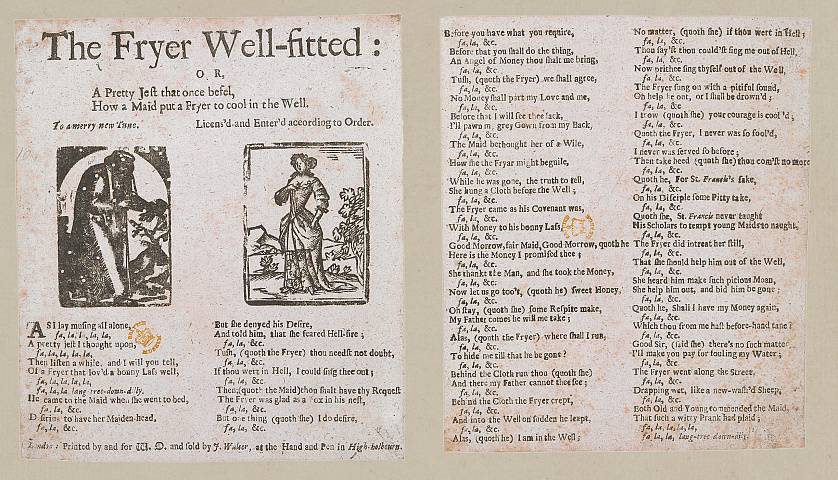 The Fryer Well-fitted :
OR,
A Pretty Jest that once befel,
How a Maid put a Fryer to cool in the Well.
To a merry new Tune.
Licens'd and Enter'd according to Order.
AS I lay musing all alone,
fa, la, la, la, la,
A pretty jest I thought upon,
fa, la, la, la, la.
Then listen a while, and I will you tell,
Of a Fryer that lov'd a bonny Lass well,
fa, la, la, la, la,
fa, la, la, lang-tree-down-dilly.
He came to the Maid when she went to bed,
fa, la, &c.
Desiring to have her Maiden-head,
fa, la, &c.
But she denyed his Desire,
And told him, that she feared Hell-fire ;
fa, la, &c.
Tush, (quoth the Fryer) thou needst not doubt,
fa, la, &c.
If thou wert in Hell, I could sing thee out ;
fa, la, &c.
Then, (quoth the Maid) thou shalt have thy Request
The Fryer was glad as a Fox in his nest,
fa, la, &c.
But one thing (quoth she) I do desire,
fa, la, &c.
London : Printed by and for W. O. and sold by J. Walter, at the Hand and Pen in High-holbourn.
Before you have what you require,
fa, la, &c.
Before that you shall do the thing,
An Angel of Money thou shalt me bring,
fa, la, &c.
Tush, (quoth the Fryer) we shall agree,
fa, la, &c.
No Money shall part my Love and me,
fa, la, &c.
Before that I will see thee lack,
I'll pawn my grey Gown from my Back,
fa, la, &c.
The Maid bethought her of a Wile,
fa, la, &c.
How she the Fryar might beguile,
fa, la, &c.
While he was gone, the truth to tell,
She hung a Cloth before the Well ;
fa, la, &c.
The Fryer came as his Covenant was,
fa, la, &c.
With Money to his bonny Lass,
fa, la, &c.
Good Morrow, fair Maid, Good Morrow, quoth he
Here is the Money I promised thee ;
fa, la, &c.
She thankt the Man, and she took the Money,
fa, la, &c.
Now let us go too't, (quoth he) sweet Honey,
fa, la, &c.
Oh stay, (quoth she) some Respite make,
My Father comes he will me take ;
fa, la, &c.
Alas, (quoth the Fryer) where shall I run,
fa, la, &c.
To hide me till that he be gone ?
fa, la, &c.
Behind the Cloth run thou (quoth she)
And there my Father cannot thee see ;
fa, la, &c.
Behind the Cloth the Fryer crept,
fa, la, &c.
And into the Well on sudden he leapt,
fa, la, &c.
Alas, (quoth he) I am in the Well ;
No matter, (quoth she) if thou wert in Hell ;
fa, la, &c.
Thou say'st thou could'st sing me out of Hell,
fa, la, &c.
Now prithee sing thyself out of the Well,
fa, la, &c.
The Fryer sung on with a pitiful sound,
Oh help me out, or I shall be drown'd ;
fa, la, &c.
I trow (quoth she) your courage is cool'd ;
fa, la, &c.
Quoth the Fryer, I never was so fool'd,
fa, la, &c.
I never was served so before ;
Then take heed (quoth she) thou com'st no more
fa, la, &c.
Quoth he, For St. Francis's sake,
fa, la, &c.
On his Disciple some Pitty take,
fa, la, &c.
Quoth she, St. Francis never taught
His Scholars to tempt young Maids to naught,
fa, la, &c.
The Fryer did intreat her still,
fa, la, &c.
That she should help him out of the Well,
fa, la, &c.
She heard him make such pitious Moan,
She help him out, and bid him be gone ;
fa, la, &c.
Quoth he, Shall I have my Money again,
fa, la, &c.
Which thou from me hast before-hand tane ?
fa, la, &c.
Good Sir, (said she) there's no such matter,
I'll make you pay for fouling my Water ;
fa, la, &c.
The Fryer went along the Street,
fa, la, &c.
Drapping wet, like a new-wash'd Sheep,
fa, la, &c.
Both Old and Young commended the Maid,
That such a witty Prank had plaid ;
fa, la, la, la, la,
fa, la, la, lang-tree down-dily.